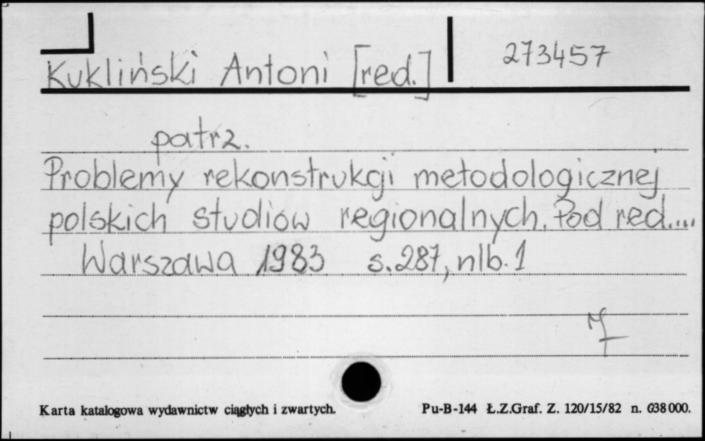 Kukliński Antoni [red.]
273457
patrz.
Problemy rekonstrukcji metodologicznej
polskich studiów regionalnych. Pod red....
Warszawa 1983 s.287, nlb.1
Karta katalogowa wydawnictw ciągłych i zwartych.
Pu-B-144 Ł.Z.Graf. Z. 120/15/82 n. 638000.